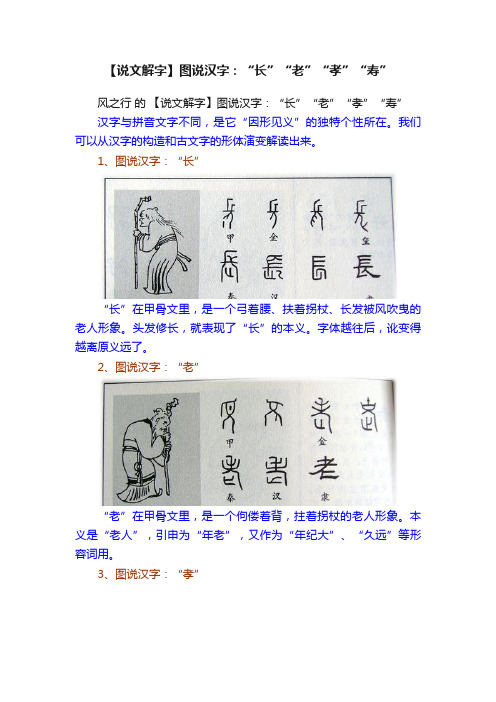 【说文解字】图说汉字：“长”“老”“孝”“寿”
风之行 的 【说文解字】图说汉字：“长”“老”“孝”“寿”
汉字与拼音文字不同，是它“因形见义”的独特个性所在。我们
可以从汉字的构造和古文字的形体演变解读出来。
1、图说汉字：“长”
甲 金 金
秦 汉 隶
“长”在甲骨文里，是一个弓着腰、扶着拐杖、长发被风吹曳的
老人形象。头发修长，就表现了“长”的本义。字体越往后，讹变得
越离原义远了。
2、图说汉字：“老”
甲 金
老
秦 汉 隶
“老”在甲骨文里，是一个佝偻着背，拄着拐杖的老人形象。本
义是“老人”，引申为“年老”，又作为“年纪大”、“久远”等形
容词用。
3、图说汉字：“孝”